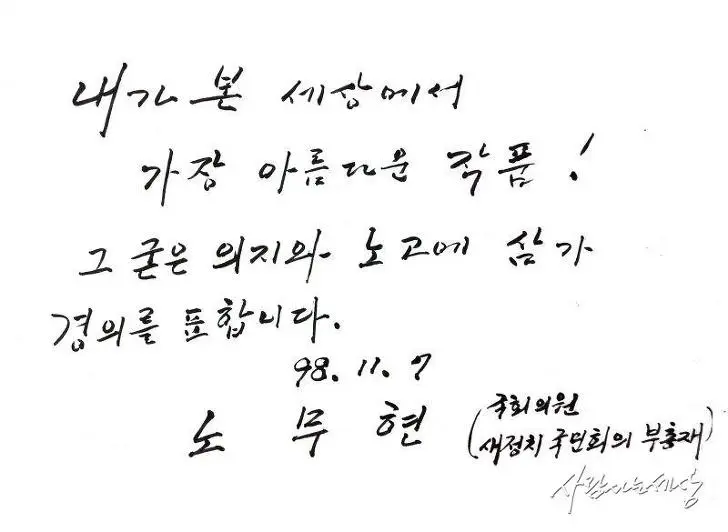 내가 본 세상에서
가장 아름다운 작품!
그 굳은 의지와 노고에 삼가
경의를 표합니다.
98. 11. 7
노 무 현
(국회의원
새정치 국민회의 부총재)
사람사는세상